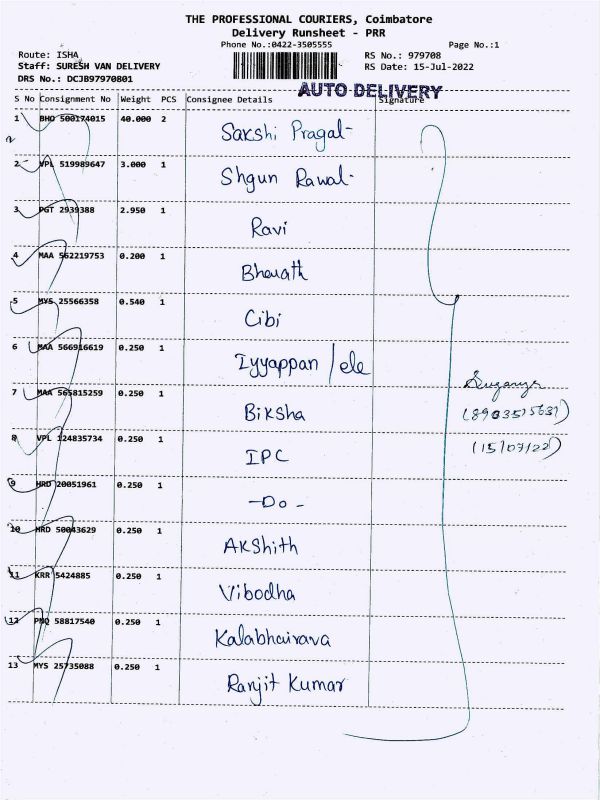 THE PROFESSIONAL COURIERS, Coimbatore
Delivery Runsheet - PRR
Phone No.:0422-3505555 Page No.:1
Route: ISHA RS No.: 979708
Staff: SURESH VAN DELIVERY RS Date: 15-Jul-2022
DRS No.: DCJB97970801
AUTO DELIVERY
S No Consignment No Weight PCS Consignee Details Signature
1 BHO 500174015 40.000 2 Sakshi Pragal-
2 VPL 519989647 3.000 1 Shgun Rawal-
3 PGT 2939388 2.950 1 Ravi
4 MAA 562219753 0.200 1 Bharath
5 MYS 25566358 0.540 1 Cibi
6 MAA 566916619 0.250 1 Iyyappan /ele
7 MAA 565815259 0.250 1 Biksha
8 VPL 124835734 0.250 1 IPC
9 HRD 20051961 0.250 1 -Do-
10 HRD 50043629 0.250 1 Akshith
11 KRR 5424885 0.250 1 Vibodha
12 PNQ 58817540 0.250 1 Kalabhairava
13 MYS 25735088 0.250 1 Ranjit Kumar
(15/07/22)